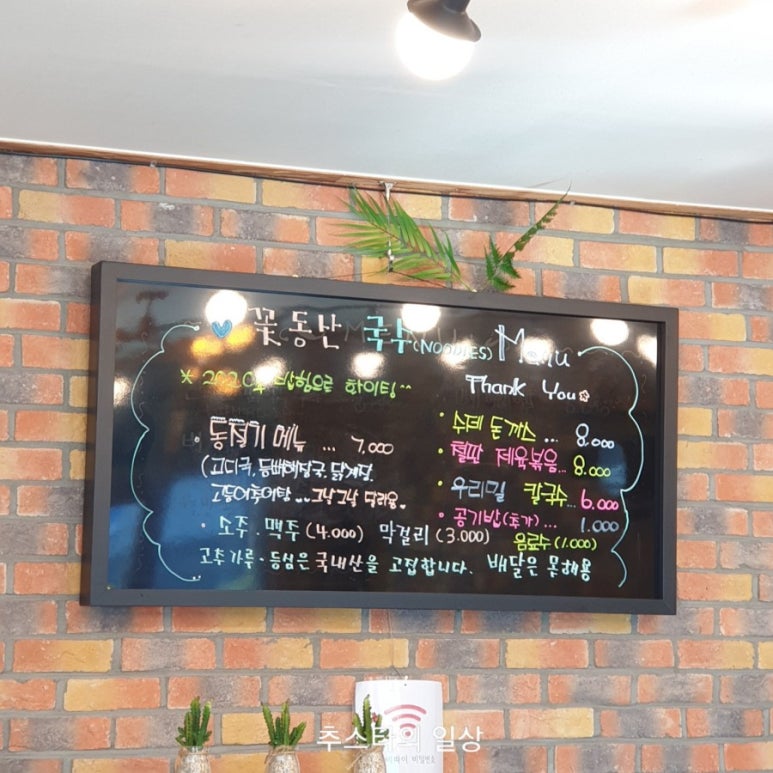 꽃동산 국수 (NOODLES) Menu
Thank You
* 2020년 밥힘으로 화이팅^^
· 동절기 메뉴 ... 7,000
(고디국, 등뼈해장국, 닭개장,
고등어추어탕 ... 그날그날 달라용
· 소주 · 맥주 (4,000) 막걸리 (3,000)
고추가루 · 등심은 국내산을 고집합니다. 배달은 못해용
· 수제 돈까스 ... 8,000
· 철판 제육볶음 ... 8,000
· 우리밀 칼국수 ... 6,000
· 공기밥(추가) ... 1,000
음료수 (1,000)
추스타의 일상
와이파이 비밀번호